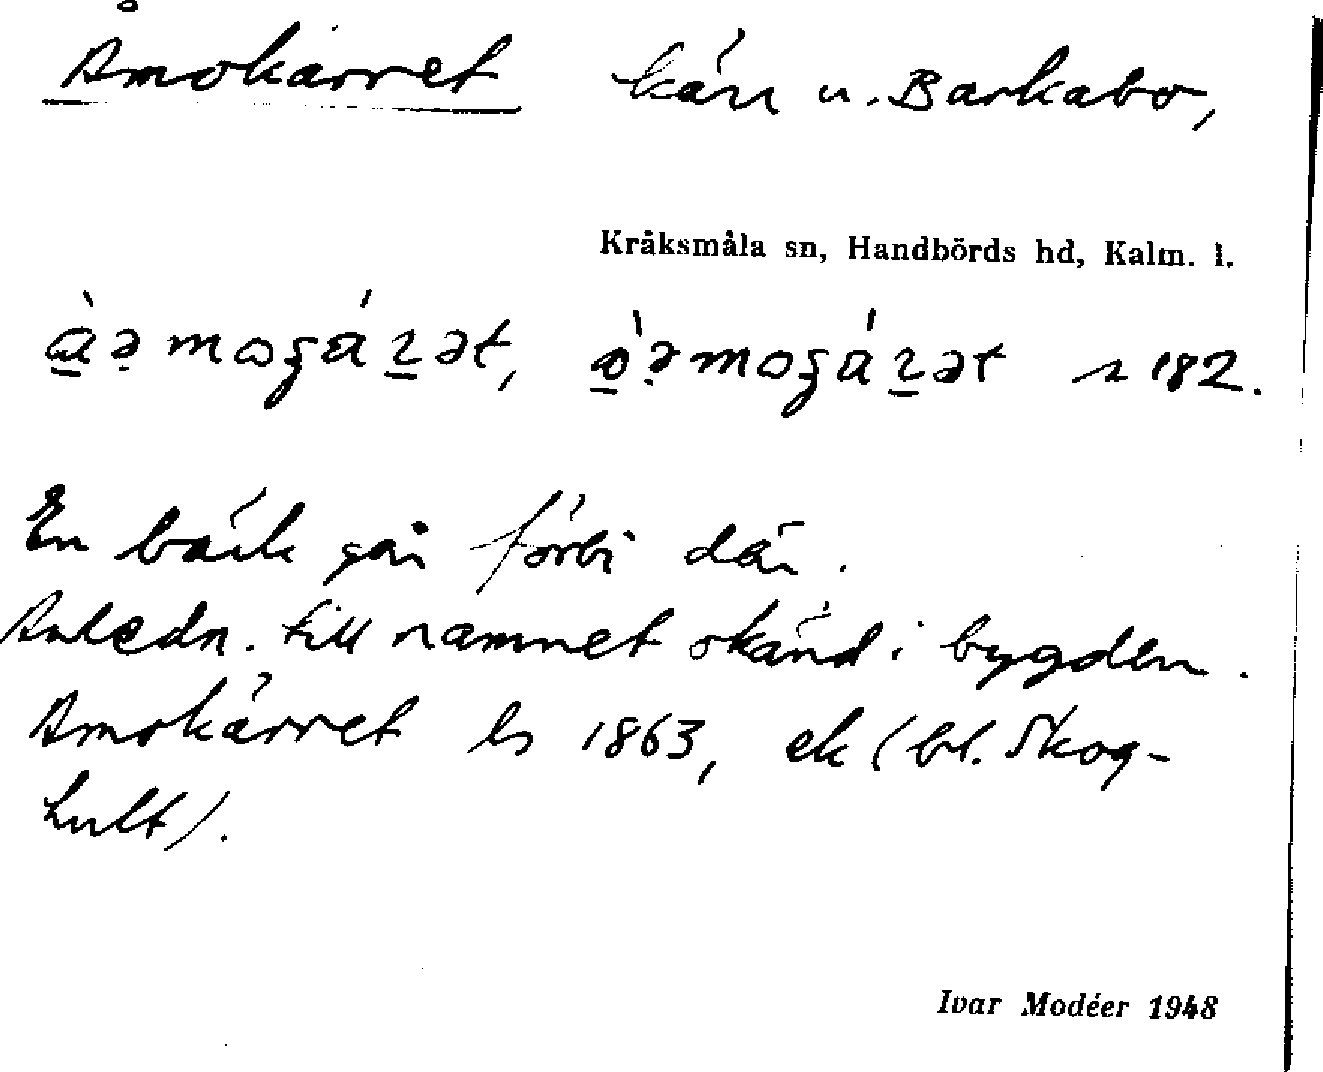 Åmokärret kärr u. Barkabo,
Kråksmåla sn, Handbörds hd, Kalm. l.
s 182.
En bäck går förbi där.
Anledn. till namnet okänd i bygden.
Amokärret ls 1863, ek (bl. Skog-
hult).
Ivar Modéer 1948